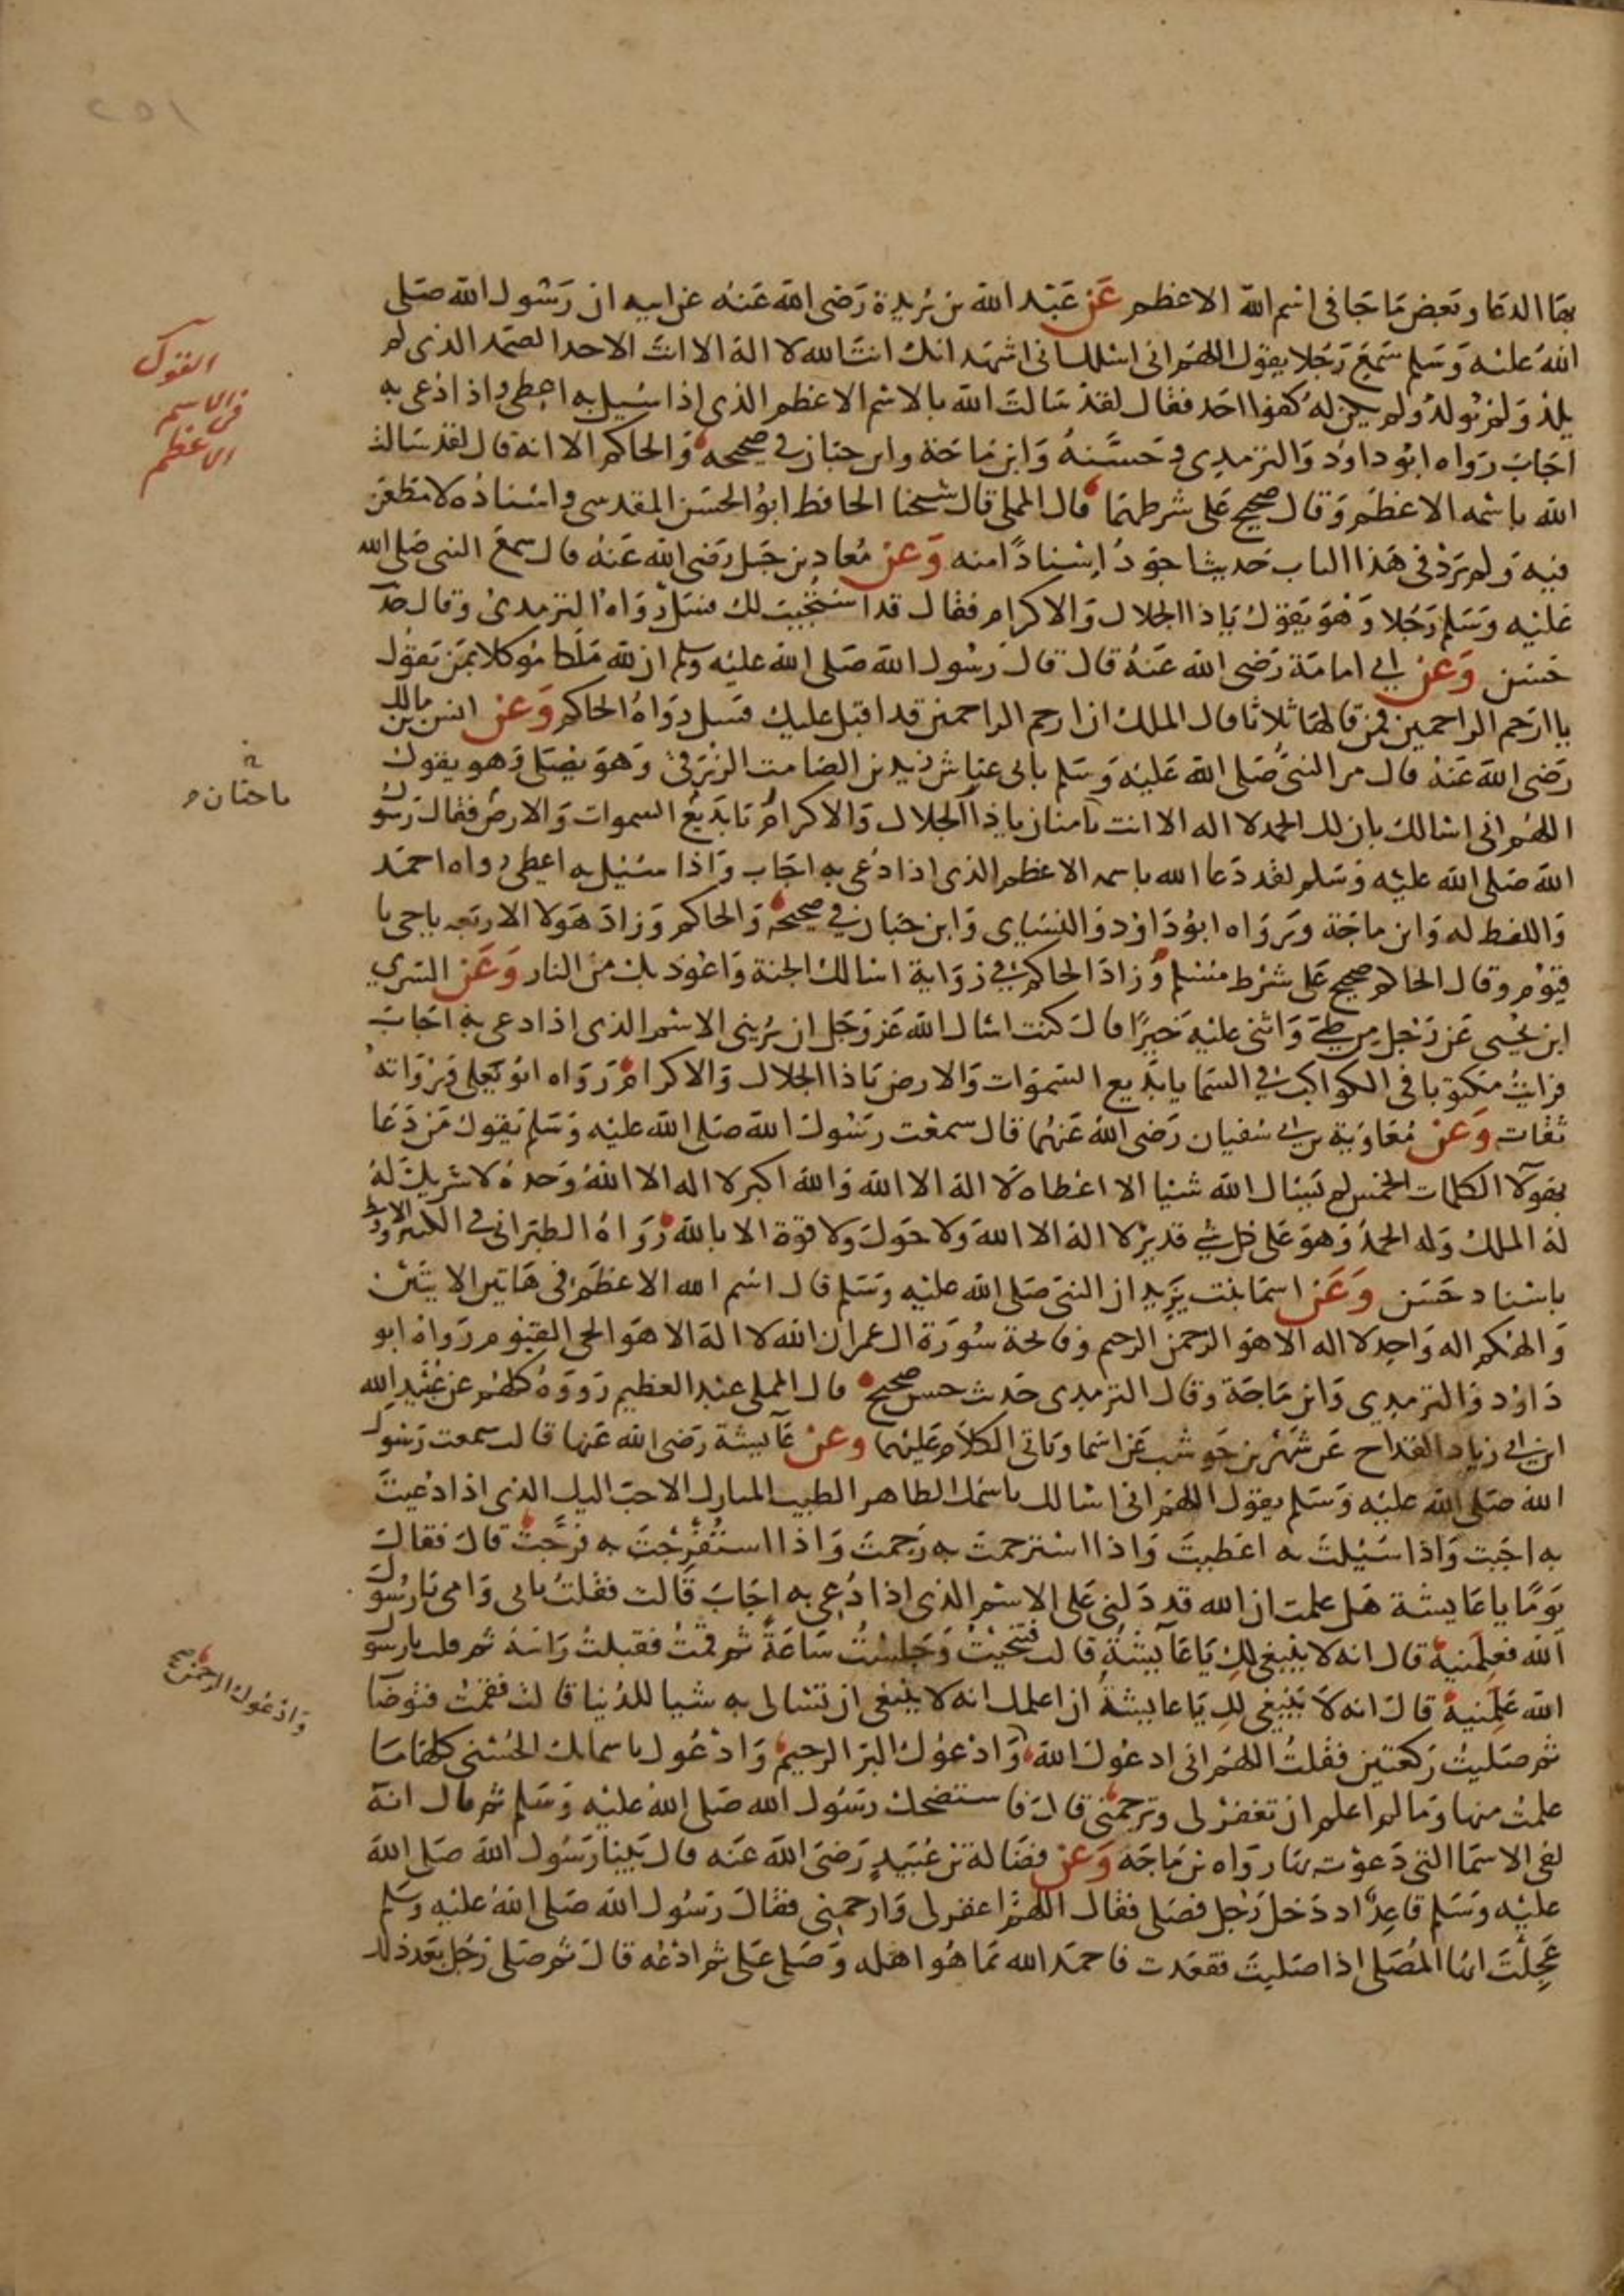 بها الدعا وبعض ما جا في اسم الله الاعظم عن عبد الله بن بريدة رضي الله عنه عن ابيه ان رسول الله صلى
الله عليه وسلم سمع رجلا يقول اللهم اني اسئلك اني اشهد انك انت الله لا اله الا انت الاحد الصمد الذي لم
يلد ولم يولد ولم يكن له كفوا احد فقال لقد سالت الله بالاسم الاعظم الذي اذا سيل به اعطى واذا دعي به
اجاب رواه ابو داود والترمدي وحسنه وابن ماجة وابن حبان في صحيحه والحاكم الا انه قال لقد سالت
الله باسمه الاعظم وقال صحيح على شرطهما قال المملي قال شيخنا الحافظ ابو الحسن المقدسي واسناده لا مطعن
فيه ولم يرد في هذا الباب حديثا اجود اسنادا منه وعن معاد بن جبل رضي الله عنه قال سمع النبي صلى الله
عليه وسلم رجلا وهو يقول يا ذا الجلال والاكرام فقال قد استجيب لك فسل رواه الترمدي وقال حد
حسن وعن ابي امامة رضي الله عنه قال قال رسول الله صلى الله عليه وسلم ان لله ملكا موكلا بمن يقول
يا ارحم الراحمين فمن قالها ثلاثا قال الملك ان ارحم الراحمين قد اقبل عليك فسل رواه الحاكم وعن انس بن مالك
رضي الله عنه قال مر النبي صلى الله عليه وسلم بابي عياش زيد بن الصامت الزرقي وهو يصلي وهو يقول
اللهم اني اسالك بان لك الحمد لا اله الا انت يا منان يا ذا الجلال والاكرام يا بديع السموات والارض فقال رسول
الله صلى الله عليه وسلم لقد دعا الله باسمه الاعظم الذي اذا دعي به اجاب واذا سئيل به اعطى رواه احمد
واللفظ له وابن ماجة ورواه ابو داود والنسايي وابن حبان في صحيحه والحاكم وزاد هولا الاربعه يا حي يا
قيوم وقال الحاكم صحيح على شرط مسلم وزاد الحاكم في رواية اسالك الجنة واعوذ بك من النار وعن السري
ابن يحيى عن رجل من طي واثنى عليه خيرا قال كنت اسال الله عز وجل ان يريني الاسم الذي اذا دعي به اجاب
فرايت مكتوبا في الكواكب في السما يا بديع السموات والارض يا ذا الجلال والاكرام رواه ابو يعلى ورواته
ثقات وعن معاوية بن ابي سفيان رضي الله عنهما قال سمعت رسول الله صلى الله عليه وسلم يقول من دعا
بهولآ الكلمات الخمس لم يسال الله شيا الا اعطاه لا اله الا الله والله اكبر لا اله الا الله وحده لا شريك له
له الملك وله الحمد وهو على كل شي قدير لا اله الا الله ولا حول ولا قوة الا بالله رواه الطبراني في الكبير والاوسط
باسناد حسن وعن اسما بنت يزيد ان النبي صلى الله عليه وسلم قال اسم الله الاعظم في هاتين الايتين
والهكم اله واحد لا اله الا هو الرحمن الرحيم وفاتحة سورة ال عمران الله لا اله الا هو الحي القيوم رواه ابو
داود والترمدي وابن ماجة وقال الترمدي حديث حسن صحيح قال المملي عبد العظيم رووه كلهم عن عبيد الله
ابن ابي زياد القداح عن شهر بن حوشب عن اسما وياتي الكلام عليهما وعن عآيشة رضي الله عنها قالت سمعت رسول
الله صلى الله عليه وسلم يقول اللهم اني اسالك باسمك الطاهر الطيب المبارك الاحب اليك الذي اذا دعيت
به اجبت واذا سئيلت به اعطيت واذا استرحمت به رحمت واذا استفرجت به فرجت قال فقال
يوما يا عايشة هل علمت ان الله قد دلني على الاسم الذي اذا دعي به اجاب قالت فقلت بابي وامي يا رسول
الله فعلمنيه قال انه لا ينبغي لك يا عآيشة قالت فتنحيت وجلست ساعة ثم قمت فقبلت راسه ثم قلت يا رسول
الله علمنيه قال انه لا ينبغي لك يا عايشة ان اعلمك انه لا ينبغي ان تسالي به شيا للدنيا قالت فقمت فتوضات
ثم صليت ركعتين فقلت اللهم اني ادعوك الله وادعوك البر الرحيم وادعوك باسمايك الحسنى كلها ما
علمت منها وما لم اعلم ان تغفر لي وترحمني قال فاستضحك رسول الله صلى الله عليه وسلم ثم قال انه
لفي الاسما التي دعوت بها رواه بن ماجة وعن فضالة بن عبيد رضي الله عنه قال بينا رسول الله صلى الله
عليه وسلم قاعد اد دخل رجل فصلى فقال اللهم اغفر لي وارحمني فقال رسول الله صلى الله عليه وسلم
عجلت ايها المصلي اذا صليت فقعدت فاحمد الله بما هو اهله وصل علي ثم ادعه قال ثم صلى رجل بعد ذلك
القول
في الاسم
الاعظم
يا حنان
وادعوك الرحمن صح
٢٥١